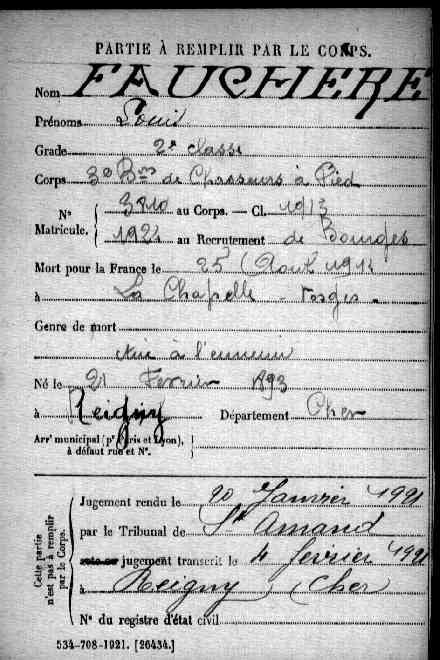 PARTIE À REMPLIR PAR LE CORPS.
Nom FAUCHERE
Prénoms Louis
Grade 2e classe
Corps 3e Bon de Chasseurs à Pied
N° Matricule. 3810 au Corps. — Cl. 1913
1921 au Recrutement de Bourges
Mort pour la France le 25 Août 1914
à La Chapelle - Vosges.
Genre de mort
tué à l'ennemi
Né le 21 Février 1893
à Reigny Département Cher
Arr' municipal (pr Paris et Lyon),
à défaut rue et N°.
Cette partie n'est pas à remplir par le Corps.
Jugement rendu le 20 Janvier 1921
par le Tribunal de St Amand
acte ou jugement transcrit le 4 février 1921
à Reigny (Cher)
N° du registre d'état civil
534-708-1921. [26434.]